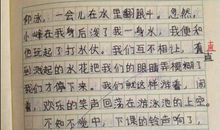 仰泳，一会儿在水里翻跟斗。忽然，
小峰在我身后泼了我一身水，我便和
他玩起了打水仗。我们互不相让，看
到溅起的水花把我们的眼睛弄模糊了
我们才停下来。我们就这样游着，闹
着，欢乐的笑声回荡在游泳池的上空
不知不觉中，下课的铃声响了，
直